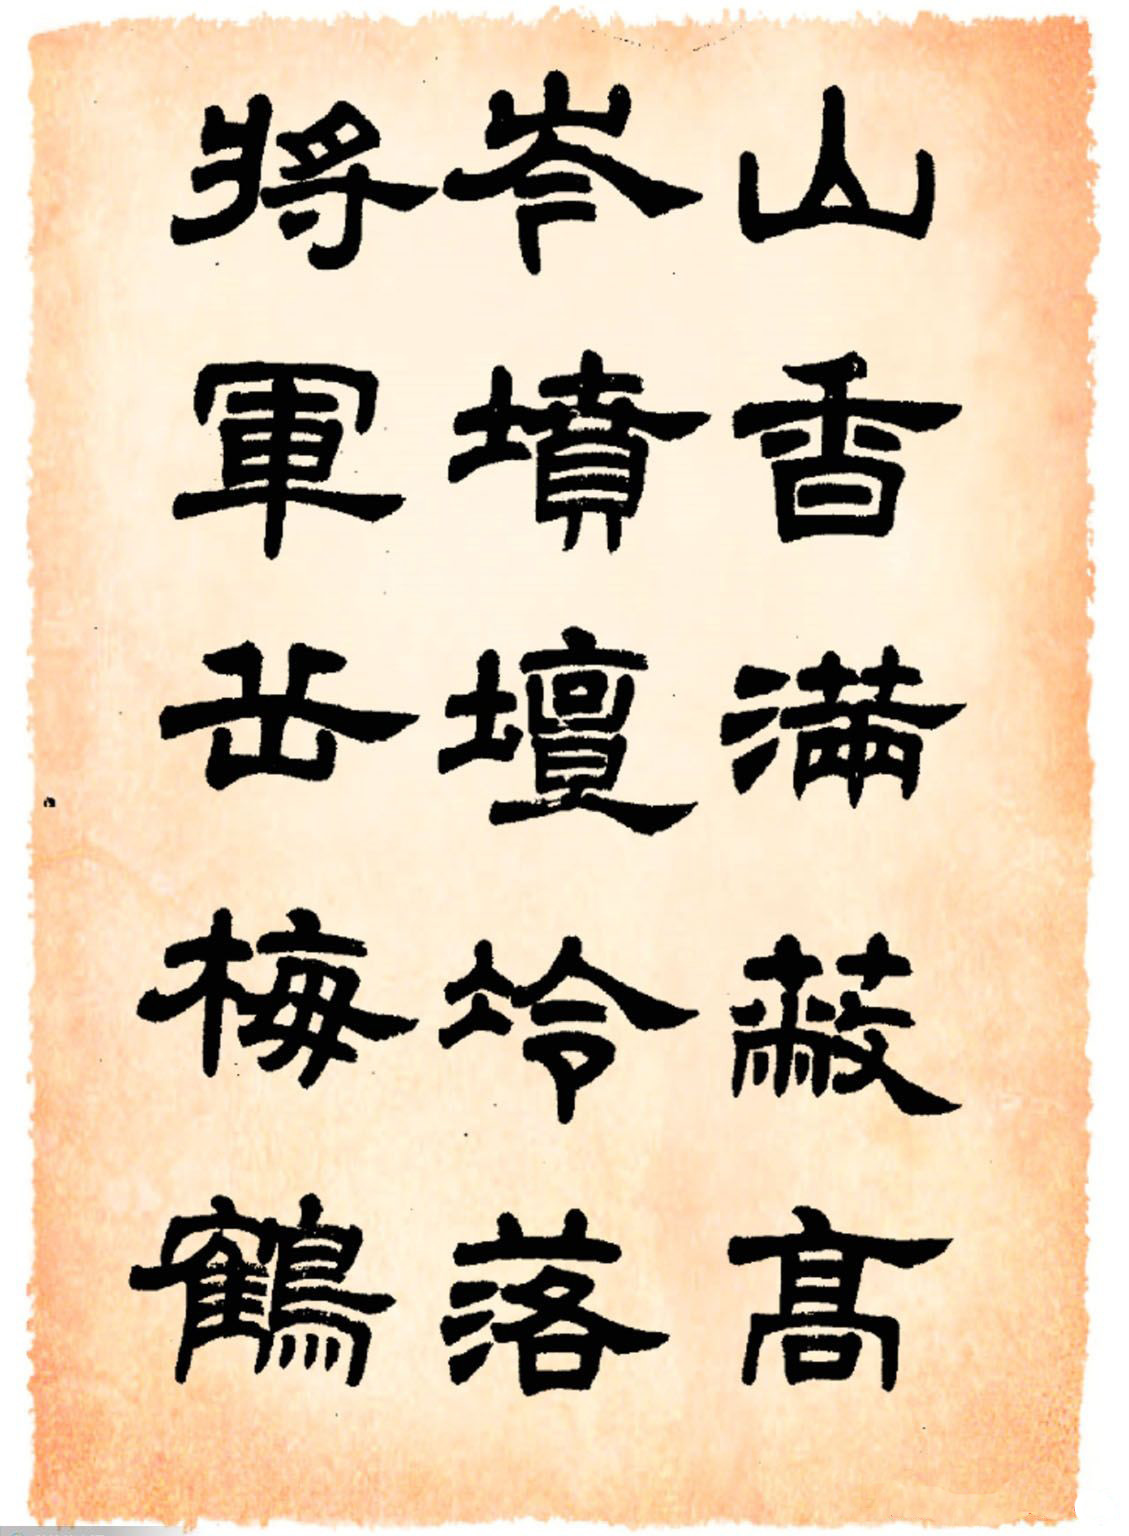 山香滿蔽高
岑墳壇冷落
將軍岳梅鶴